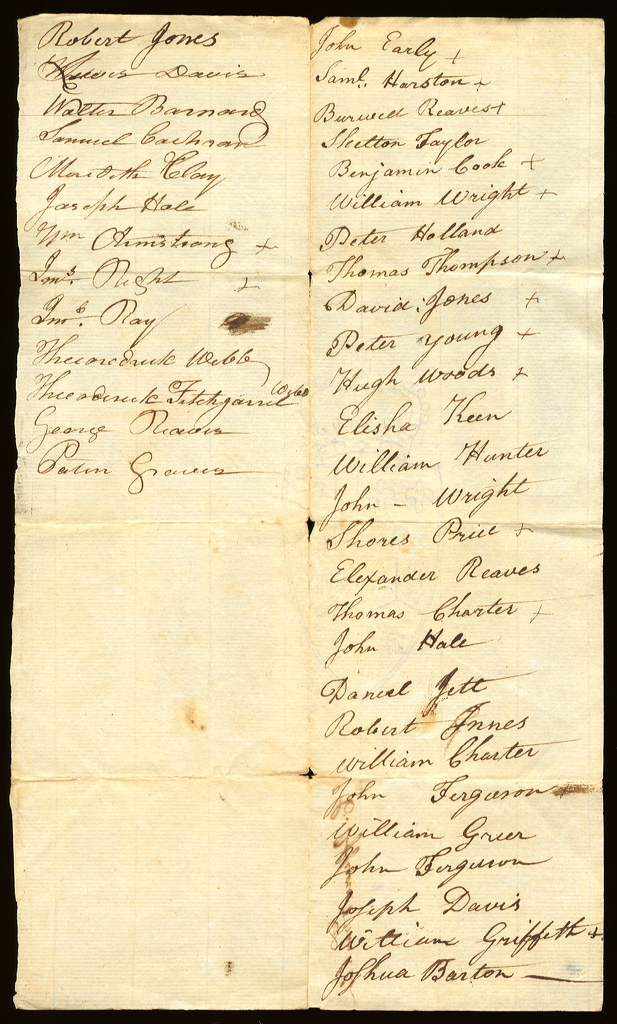 Robert Jones
Davis
Walter Barnard
Samuel Cochran
Merideth Clay
Joseph Hale
Wm Armstrong +
Jms. Right +
Jms. Ray
Theoredrick Webb
Theoderick Fitchgarrel Webb
George Reaves
Graves
John Early +
Saml. Harston +
Burwell Reaves +
Skelton Taylor
Benjamin Cook +
William Wright +
Peter Holland
Thomas Thompson +
David Jones +
Peter Young +
Hugh Woods +
Elisha Keen
William Hunter
John - Wright
Shores Price +
Elexander Reaves
Thomas Charter +
John Hale
Daniel Jett
Robert Innes
William Charter
John Ferguson +
William Greer
John Ferguson
Joseph Davis
William Griffeth +
Joshua Barton —